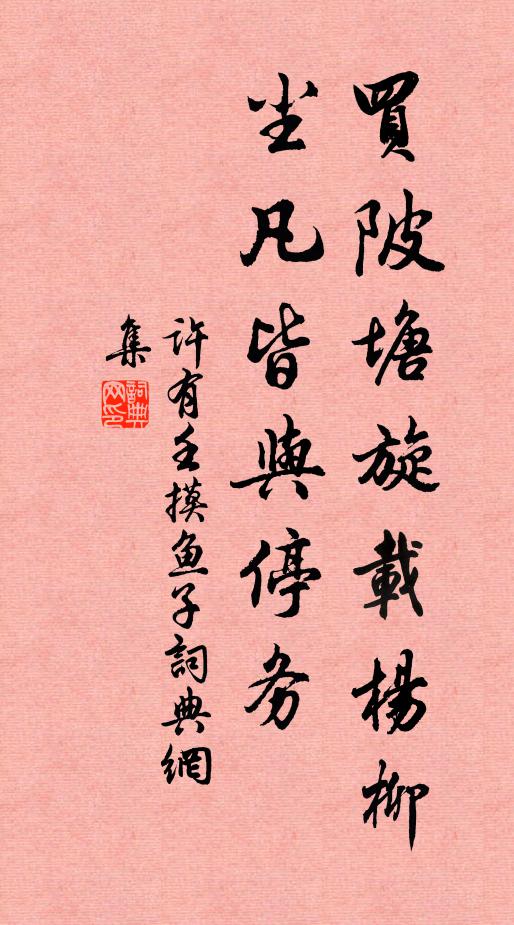 買陂塘旋載楊柳
坐凡皆與停务
许有壬摸鱼子詞典網
集
詞典
网印